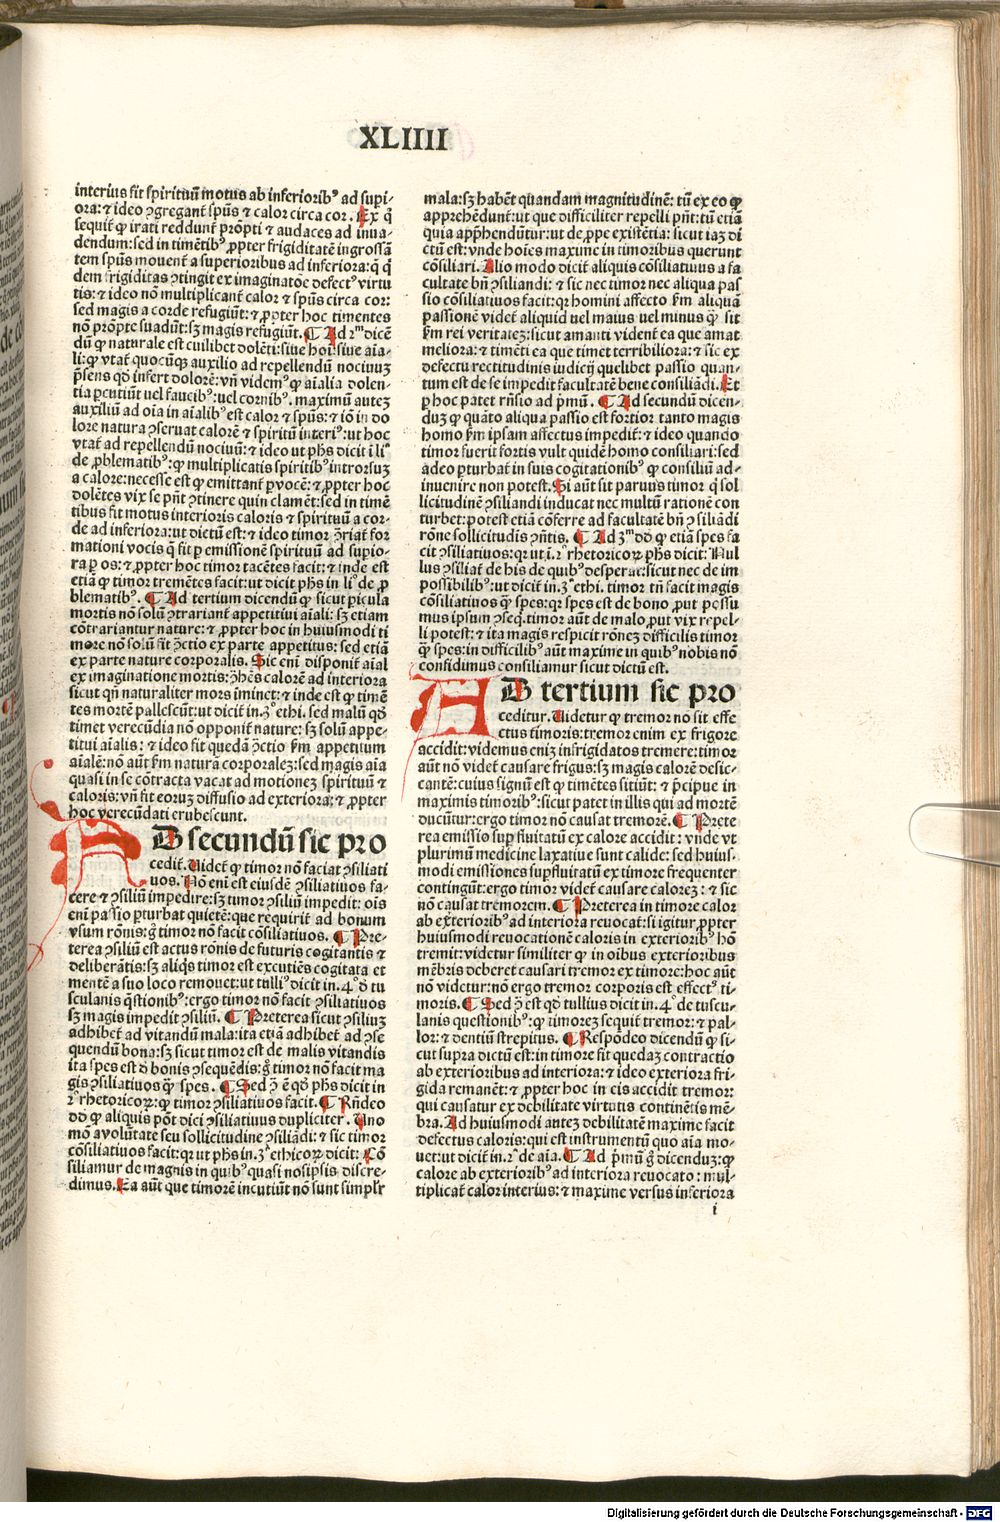 XLIIII
interius fit spirituū motus ab inferiorib⁹ ad supi-
ora: ⁊ ideo ꝯgregant̄ spūs ⁊ calor circa cor. Ex q̊
sequit̄ ꝙ irati reddunt̄ prōpti ⁊ audaces ad inua-
dendum: sed in timētib⁹ ꝓpter frigiditatē ingrossā
tem spūs mouent̄ a superioribus ad inferiora: q̄ q̄
dem frigiditas ꝯtingit ex imaginatōe defect⁹ virtu
tis: ⁊ ideo nō multiplicant̄ calor ⁊ spūs circa cor:
sed magis a corde refugiūt: ⁊ ꝓpter hoc timentes
nō prōpte inuadūt: sꝫ magis refugiūt. ¶ Ad 2ᵐ dicē
dū ꝙ naturale est cuilibet dolēti: siue hoī: siue aīa-
li: ꝙ vtat̄ quocūqꝫ auxilio ad repellendū nociuuꝫ
p̄sens qd̄ infert dolorē: vn̄ videm⁹ ꝙ aīalia dolen-
tia ꝑcutiūt vel faucib⁹: vel cornib⁹. maximū auteꝫ
auxiliū ad oīa in aīalib⁹ est calor ⁊ spūs: ⁊ iō in do
lore natura ꝯseruat calorē ⁊ spiritū interi⁹: ut hoc
vtat̄ ad repellendū nociuū: ⁊ ideo ut phs dicit ī li°
de ꝓblematib⁹: ꝙ multiplicatis spiritib⁹ introrsuꝫ
a calore: necesse est ꝙ emittant̄ ꝑ vocē: ⁊ ꝓpter hoc
dolētes vix se pn̄t ꝯtinere quin clament: sed in timē
tibus fit motus interioris caloris ⁊ spirituū a cor-
de ad inferiora: ut dictū est: ⁊ ideo timor ꝯriat̄ for
mationi vocis q̄ fit ꝑ emissionē spirituū ad supio-
ra ꝑ os: ⁊ ꝓpter hoc timor tacētes facit: ⁊ inde est
etiā ꝙ timor tremētes facit: ut dicit phs in li° de ꝓ
blematib⁹. ¶ Ad tertium dicendū ꝙ sicut ꝑicula
mortis nō solū ꝯtrariant̄ appetitui aīali: sꝫ etiam
cōtrariantur nature: ⁊ ꝓpter hoc in huiusmodi ti
more nō solū fit ꝯtctio ex parte appetitus: sed etiā
ex parte nature corporalis. Sic enī disponit̄ aīal
ex imaginatione mortis: ꝯhēs calorē ad interiora
sicut qn̄ naturaliter mors iminet: ⁊ inde est ꝙ timē
tes mortē pallescūt: ut dicit̄ in.3° ethi. sed malū qd̄
timet verecūdia nō opponit̄ nature: sꝫ solū appe-
titui aīalis: ⁊ ideo fit quedā ꝯctio ẜm appetitum
aīalē: nō aūt ẜm naturā corporaleꝫ: sed magis aīa
quasi in se cōtracta vacat ad motioneꝫ spirituū ⁊
caloris: vn̄ fit eoruꝫ diffusio ad exteriora: ⁊ ꝓpter
hoc verecūdati erubescunt.
AD secundū sic pro
cedit̄. Uidet̄ ꝙ timor nō faciat ꝯsiliati
uos. Nō enī est eiusdē ꝯsiliatiuos fa-
cere ⁊ ꝯsiliū impedire: sꝫ timor ꝯsiliū impedit: oīs
enī passio ꝑturbat quietē: que requirit̄ ad bonum
vsum rōnis: gͦ timor nō facit cōsiliatiuos. ¶ Pre-
terea ꝯsiliū est actus rōnis de futuris cogitantis ⁊
deliberātis: sꝫ aliqͥs timor est excutiēs cogitata et
mentē a suo loco remouet: ut tulli⁹ dicit in.4° d̄ tu
sculanis q̄stionib⁹: ergo timor nō facit ꝯsiliatiuos
sꝫ magis impedit ꝯsiliū. ¶ Preterea sicut ꝯsiliuꝫ
adhibet̄ ad vitandū mala: ita etiā adhibet̄ ad ꝯse
quendū bona: sꝫ sicut timor est de malis vitandis
ita spes est d̄ bonis ꝯsequēdis: gͦ timor nō facit ma
gis ꝯsiliatiuos q̄ꝫ spes. ¶ Sed ꝯ̄ ē qd̄ phs dicit in
2° rhetoricoꝝ: ꝙ timor ꝯsiliatiuos facit. ¶ Rn̄deo
dd̄ ꝙ aliquis pōt dici ꝯsiliatiuus dupliciter. Uno
mō a volūtate seu sollicitudine ꝯsiliādi: ⁊ sic timor
cōsiliatiuos facit: qꝛ ut phs in.3° ethicoꝝ dicit: Cō
siliamur de magnis in quib⁹ quasi nosipsis discre-
dimus. Ea aūt que timorē incutiūt nō sunt simplr̄
mala: sꝫ habēt quandam magnitudinē: tū ex eo ꝙ
apprehēdunt̄: ut que difficiliter repelli pn̄t: tū etiā
quia app̄hendūtur: ut de ꝓpe existētia: sicut iaꝫ di
ctū est: vnde hoīes maxime in timoribus querunt
cōsiliari. Alio modo dicit̄ aliquis cōsiliatiuus a fa
cultate bn̄ ꝯsiliandi: ⁊ sic nec timor nec aliqua pas
sio cōsiliatiuos facit: qꝛ homini affecto ẜm aliquā
passionē videt̄ aliquid vel maius vel minus q̄ꝫ sit
ẜm rei veritateꝫ: sicut amanti vident̄ ea que amat
meliora: ⁊ timēti ea que timet terribiliora: ⁊ sic ex
defectu rectitudinis iudicij quelibet passio quan-
tum est de se impedit facultatē bene consiliādi. Et
ꝑ hoc patet rn̄sio ad p̄mū. ¶ Ad secundū dicen-
duꝫ ꝙ quāto aliqua passio est fortior tanto magis
homo ẜm ipsam affectus impedit̄: ⁊ ideo quando
timor fuerit fortis vult quidē homo consiliari: sed
adeo ꝑturbat̄ in suis cogitationib⁹ ꝙ consiliū ad-
inuenire non potest. Si aūt sit paruus timor q̄ sol
licitudinē ꝯsiliandi inducat nec multū rationē con
turbet: potest etiā cōferre ad facultatē bn̄ ꝯsiliādi
rōne sollicitudīs ꝯn̄tis. ¶ Ad 3ᵐ dd̄ ꝙ etiā spes fa
cit ꝯsiliatiuos: qꝛ ut ī.2° rhetoricoꝝ phs dicit: Nul
lus ꝯsiliat̄ de his de quib⁹ desperat: sicut nec de im
possibilib⁹: ut dicit̄ in.3° ethi. timor tn̄ facit magis
cōsiliatiuos q̄ꝫ spes: qꝛ spes est de bono ꝓut possu
mus ipsum ꝯseq̄. timor aūt de malo, put vix repel-
li potest: ⁊ ita magis respicit rōneꝫ difficilis timor
q̄ꝫ spes: in difficilib⁹ aūt maxime in quib⁹ nobis nō
confidimus consiliamur sicut dictū est.
AD tertium sic pro
ceditur. Uidetur ꝙ tremor nō sit effe
ctus timoris: tremor enim ex frigore
accidit: videmus eniꝫ infrigidatos tremere: timor
aūt nō videt̄ causare frigus: sꝫ magis calorē desic-
cantē: cuius signū est ꝙ timētes sitiūt: ⁊ p̄cipue in
maximis timorib⁹: sicut patet in illis qui ad mortē
ducūtur: ergo timor nō causat tremorē. ¶ Prete
rea emissio suꝑfluitatū ex calore accidit: vnde vt
plurimū medicine laxatiue sunt calide: sed huius-
modi emissiones suꝑfluitatū ex timore frequenter
contingūt: ergo timor videt̄ causare caloreꝫ: ⁊ sic
nō causat tremorem. ¶ Preterea in timore calor
ab exteriorib⁹ ad interiora reuocat̄: si igitur ꝓpter
huiusmodi reuocationē caloris in exteriorib⁹ hō
tremit: videtur similiter ꝙ in oībus exterioribus
mēbris deberet causari tremor ex timore: hoc aūt
nō videtur: nō ergo tremor corporis est effect⁹ ti-
moris. ¶ Sed ꝯ̄ est qd̄ tullius dicit in.4° de tuscu-
lanis questionib⁹: ꝙ timoreꝫ sequit̄ tremor: ⁊ pal-
lor: ⁊ dentiū strepitus. ¶ Respōdeo dicendū ꝙ si-
cut supra dictū est: in timore fit quedaꝫ contractio
ab exterioribus ad interiora: ⁊ ideo exteriora fri-
gida remanēt: ⁊ ꝓpter hoc in eis accidit tremor:
qui causatur ex debilitate virtutis continētis mē-
bra. Ad huiusmodi auteꝫ debilitatē maxime facit
defectus caloris: qui est instrumentū quo aīa mo-
uet: ut dicit̄ in.2° de aīa. ¶ Ad p̄mū gͦ dicenduꝫ: ꝙ
calore ab exteriorib⁹ ad interiora reuocato: mul-
tiplicat̄ calor interius: ⁊ maxime versus inferiora
i
Digitalisierung gefördert durch die Deutsche Forschungsgemeinschaft - DFG